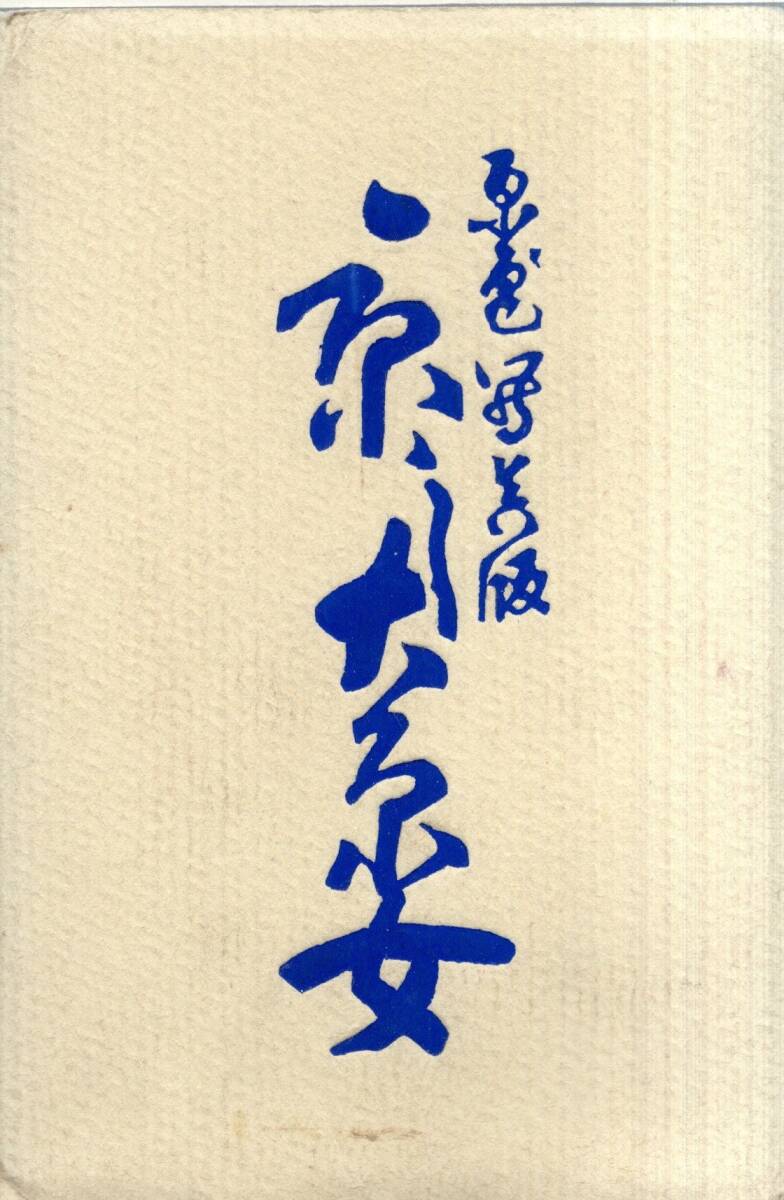 原色寫真版
京
大原女